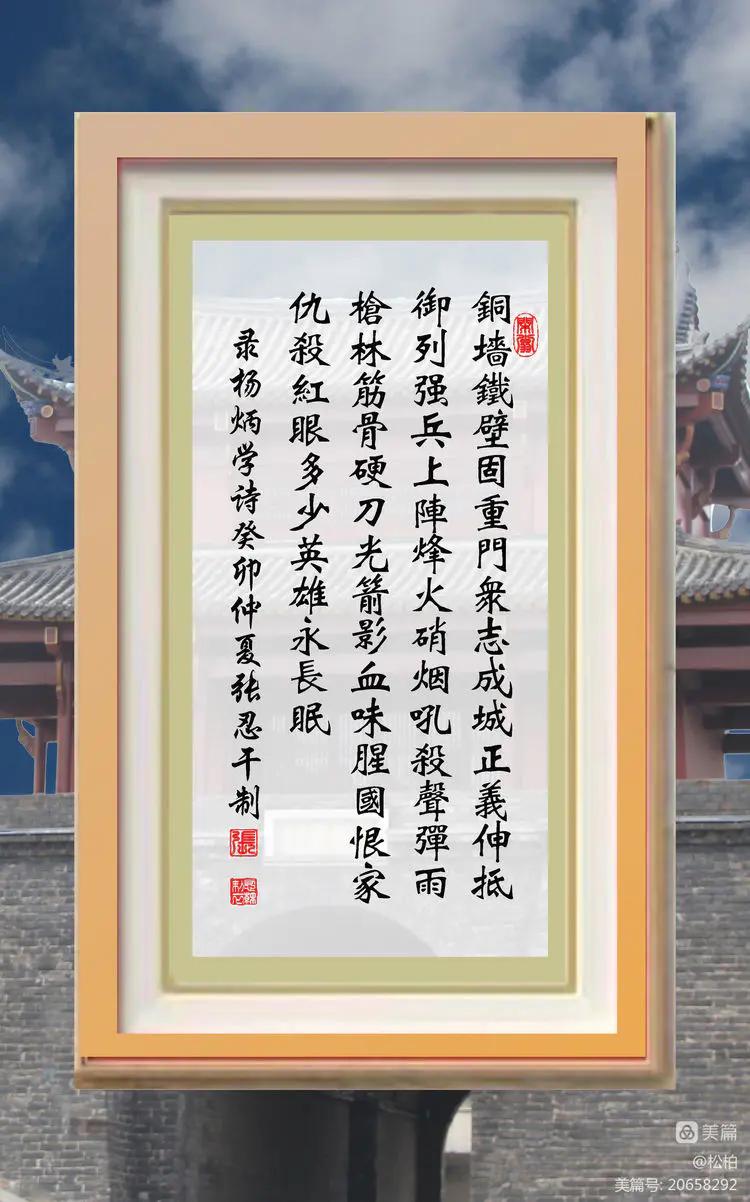 銅墻鐵壁固重門衆志成城正義伸抵
御列强兵上陣烽火硝烟吼殺聲彈雨
槍林筋骨硬刀光箭影血味腥國恨家
仇殺紅眼多少英雄永長眠
录杨炳学诗癸卯仲夏张忍干制
美篇
@松柏
美篇号: 20658292